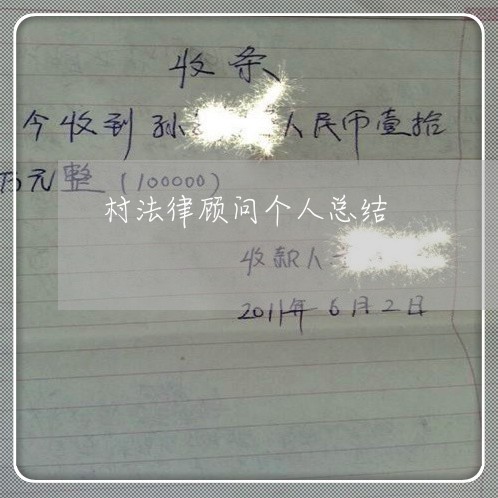 收条
今收到孙 人民币壹拾
万元整（100000）
村法律顾问个人总结
收款人
2011年6月2日